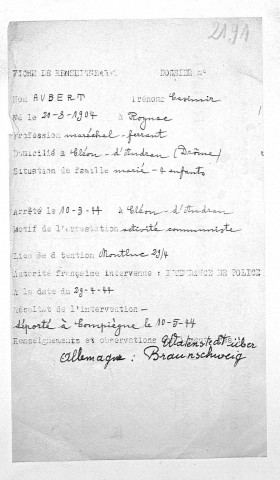 2191
FICHE DE RENSEIGNEMENTS DOSSIER N°
Nom AUBERT Prénoms Casimir
Né le 20-8-1904 à Rognac
Profession maréchal-ferrant
Domicilié à Cléon-d'Andran (Drôme)
Situation de famille marié - 2 enfants
Arrêté le 10-3-44 à Cléon-d'Andran
Motif de l'arrestation activité communiste
Lieu de détention Montluc 29/4
Autorité française intervenue : INTENDANCE DE POLICE
A la date du 29-4-44
Résultat de l'intervention -
déporté à Compiègne le 10-5-44
Renseignements et observations Watenstedt über
Allemagne : Braunschweig